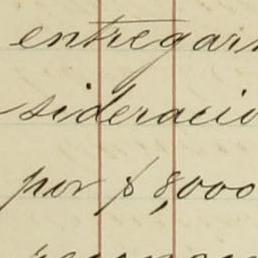 entregar
sideracio
por $ 8,000